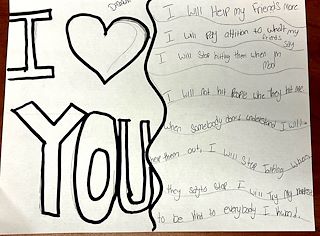 I ♡
YOU
I will Help my Friends more
I will Pay attition to what my
friends say
I will Stop hitting them when Im
mad
I will not hit People when They hit me.
when Somebody doesnt understand I will
help them out, I will Stop Talking when
they say to stop I will Try my
to be kind to everybody I